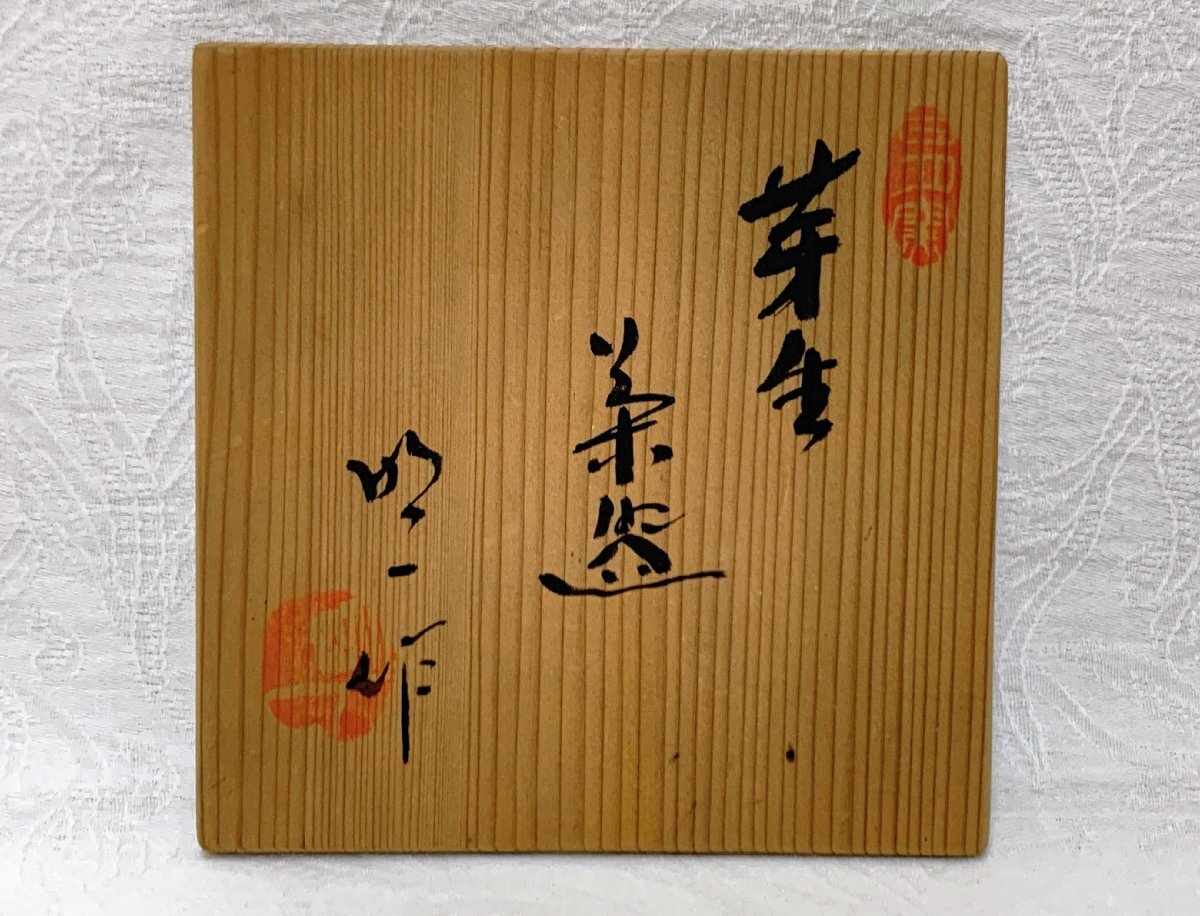 芽生
菓器
明一作